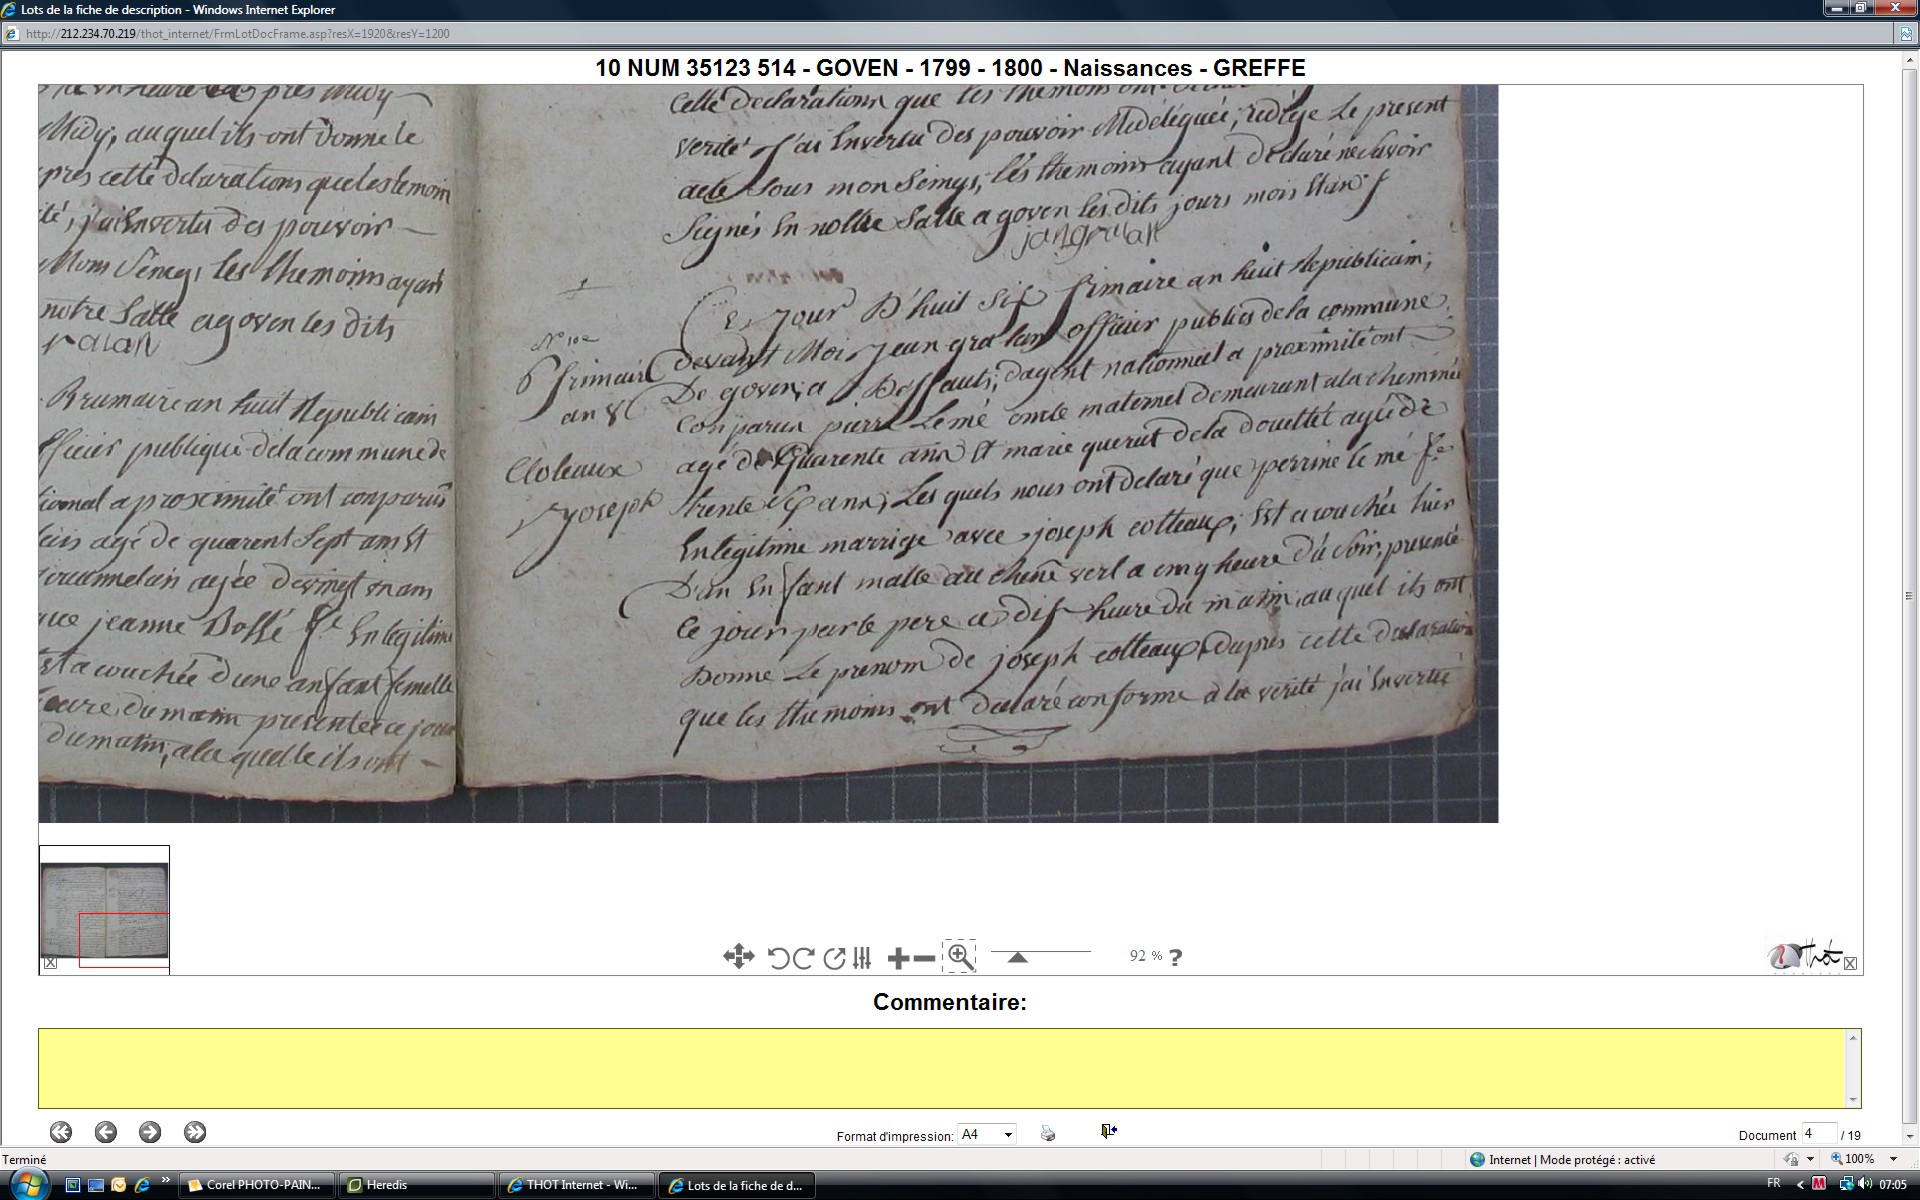 Lots de la fiche de description - Windows Internet Explorer
http://212.234.70.219/thot_internet/FrmLotDocFrame.asp?resX=1920&resY=1200
10 NUM 35123 514 - GOVEN - 1799 - 1800 - Naissances - GREFFE
heure après Midy
Midy, auquel ils ont donne le
pres cette declarations que les temoin
ité, j'ai Envertu des pouvoir
Mom Semg, les themoins ayant
notre Salle agoven les dits
Brumaire an huit Republicain
fficier publique dela commune de
tionnal a proximité ont comparus
agé de quarent Sept ans Et
agée de vingt
que jeanne Bossé fe En legitime
Est acouchée d'une anfant femelle
heure du matin presentée ce jour
du matin, a la quelle ils ont
Cette declarations que les themoins ont
verité J'ai Envertu des pouvoir Mideléguée, redige Le present
acte Sous mon Semg, les themoins ayant declaré ne Savoir
Signés En notre Salle a goven les dits jours mois Et an
jangralan
6 frimaire
an 8
Coleaux
joseph
Ce jour D'huit Six frimaire an huit Republicain;
devant Moi jean gralan officier publics de la commune
De goven, a Deffauts, dagent nationnal a proximité ont
Comparus pierre Lemé oncle maternel demeurant ala cheminé
agé de Quarente ans Et marie querut dela douettée agée de
trente ans, Les quels nous ont declaré que perrine le mé fe
En legitime marrige avec joseph cotteaux, Est acouchée hier
D'un Enfant malle au chene vert a cinq heure du Soir, presenté
Ce jour par le pere a dix heure du matin, au quel ils ont
Donné Le prenom de joseph cotteaux, dapres cette declaration
que les themoins ont declaré conforme a la verité j'ai Envertu
92 %
?
Thot
Commentaire:
Format d'impression: A4
Document 4 / 19
Terminé
Internet | Mode protégé : activé
100%
Corel PHOTO-PAIN...
Heredis
THOT Internet - Wi...
Lots de la fiche de d...
FR
07:05